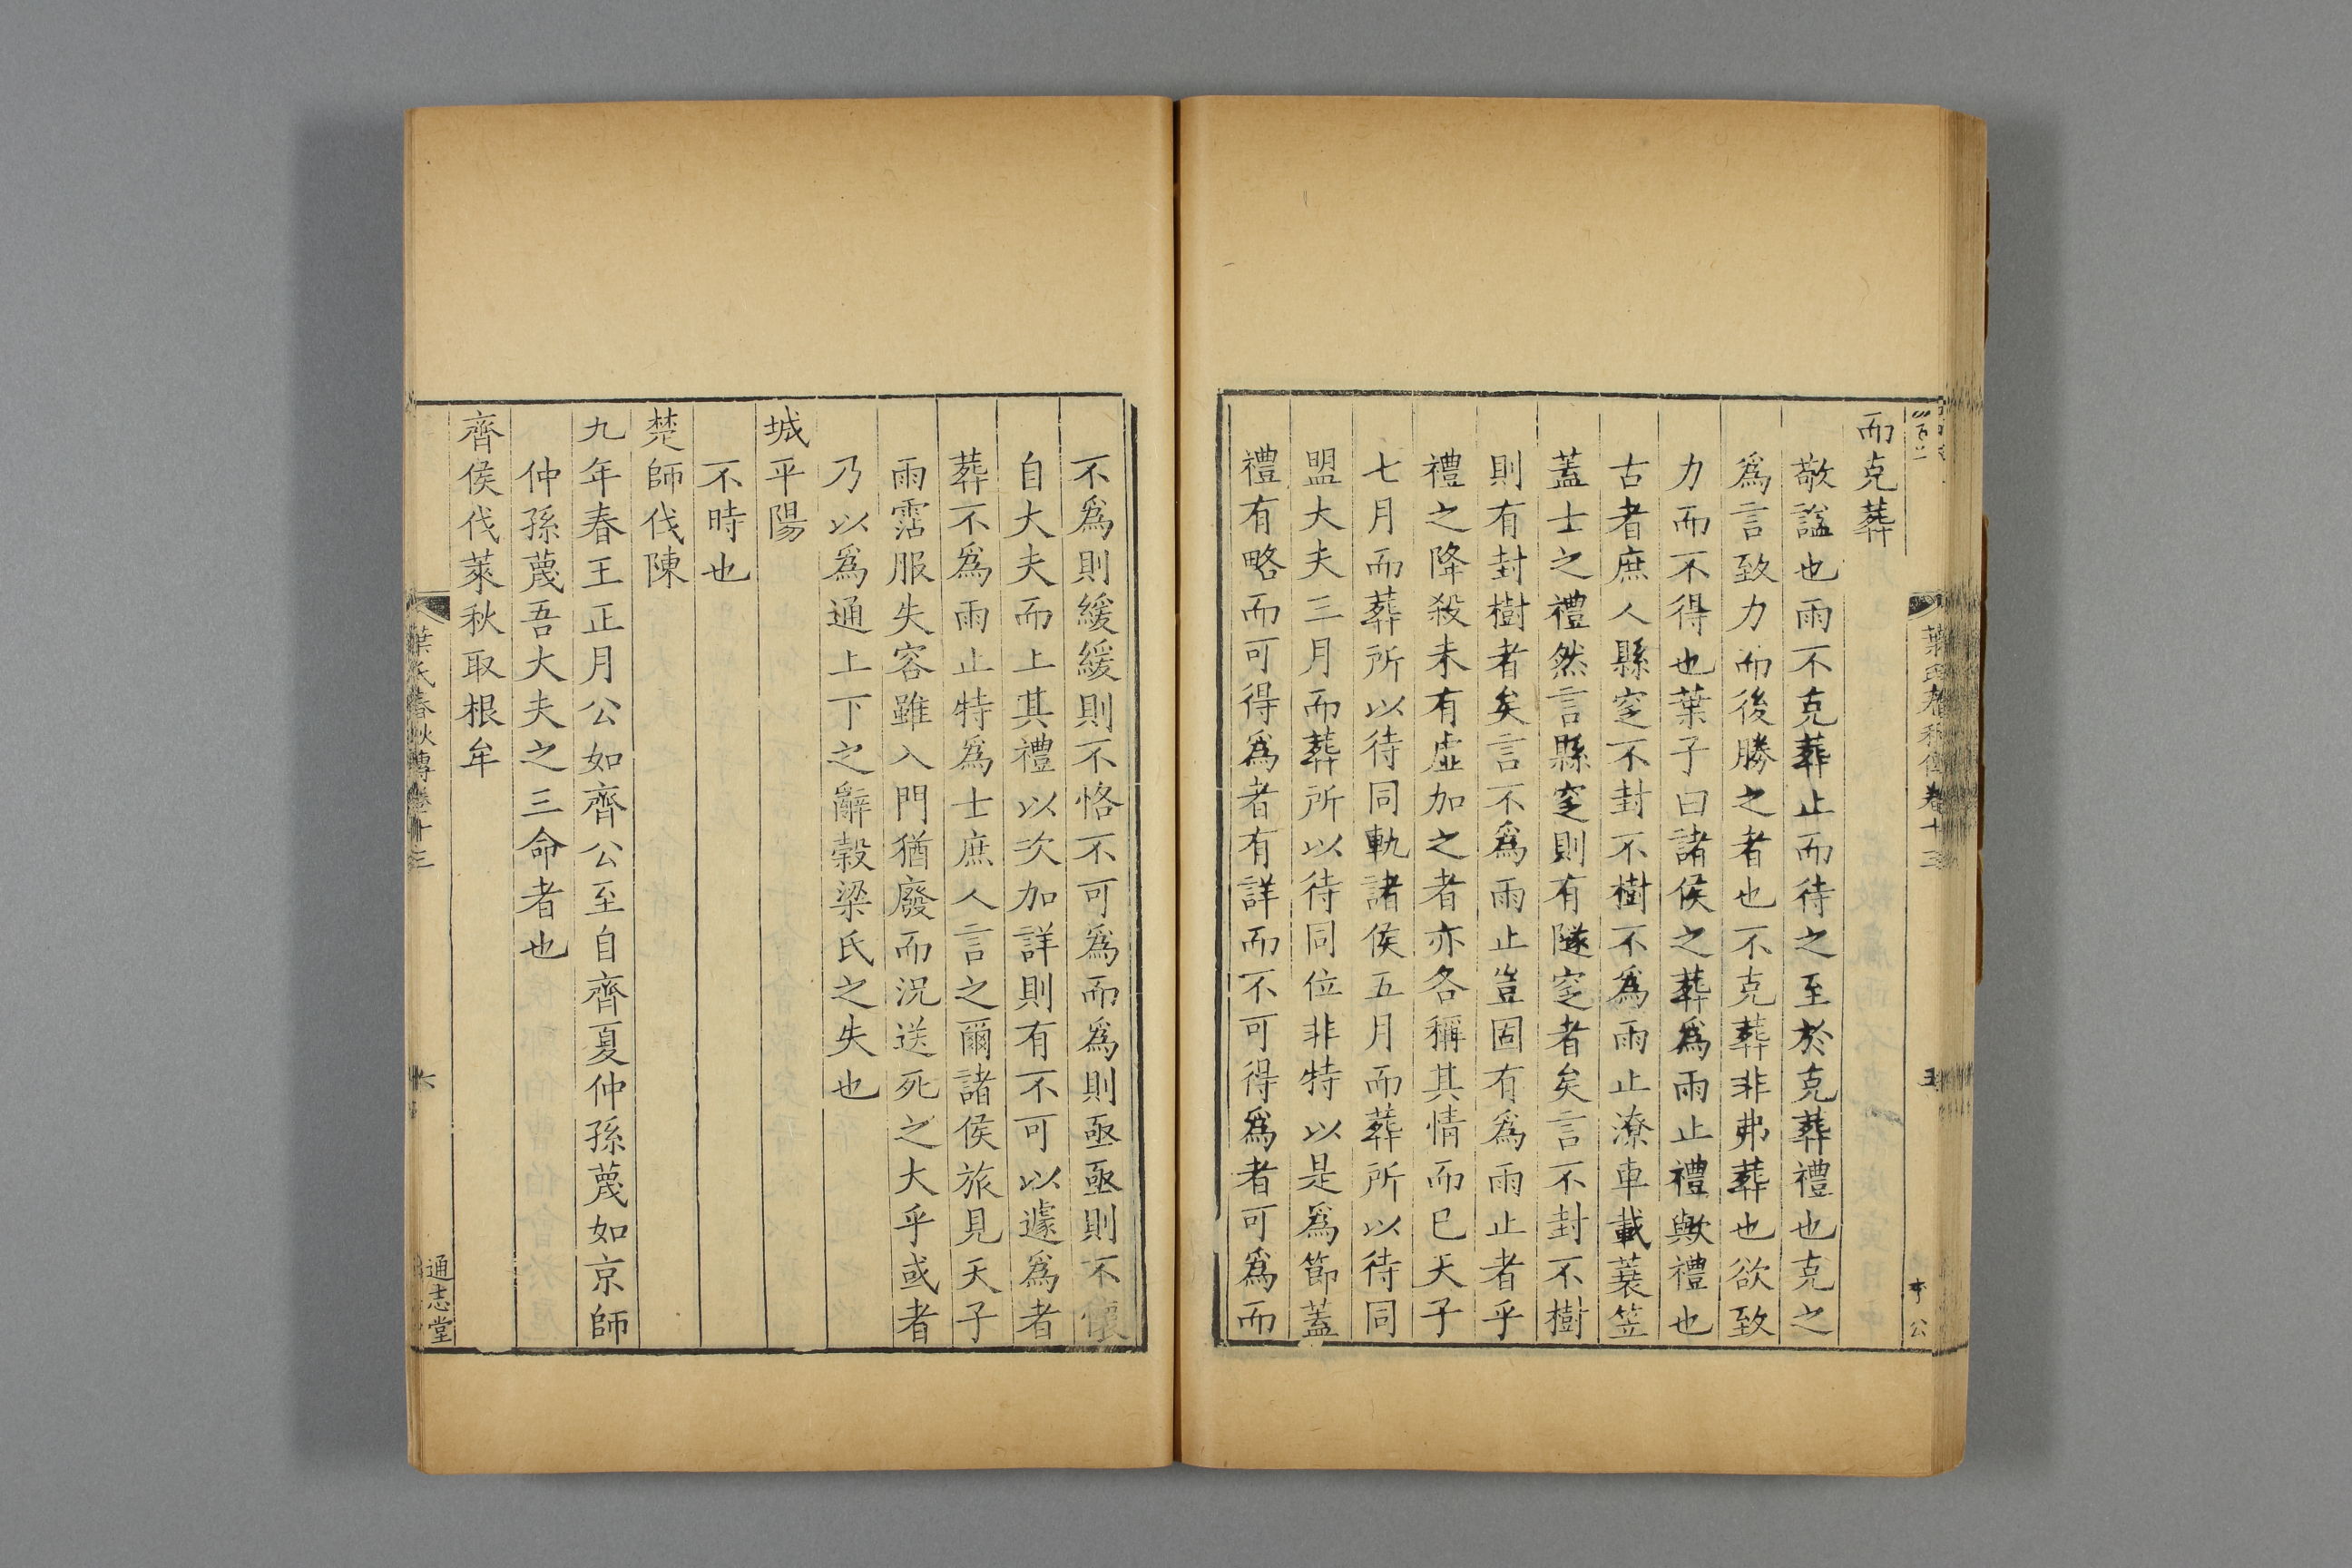 葉氏春秋傳卷十三
五
李公
而克葬
敬謚也雨不克葬止而待之至於克葬禮也克之
爲言致力而後勝之者也不克葬非弗葬也欲致
力而不得也葉子曰諸侯之葬爲雨止禮歟禮也
古者庶人縣窆不封不樹不爲雨止潦車載蓑笠
蓋士之禮然言縣窆則有隧窆者矣言不封不樹
則有封樹者矣言不爲雨止豈固有爲雨止者乎
禮之降殺未有虛加之者亦各稱其情而已天子
七月而葬所以待同軌諸侯五月而葬所以待同
盟大夫三月而葬所以待同位非特以是爲節蓋
禮有略而可得爲者有詳而不可得爲者可爲而
不爲則緩緩則不恪不可爲而爲則亟亟則不懷
自大夫而上其禮以次加詳則有不可以遽爲者
葬不爲雨止特爲士庶人言之爾諸侯旅見天子
雨霑服失容雖入門猶廢而況送死之大乎或者
乃以爲通上下之辭榖梁氏之失也
城平陽
不時也
楚師伐陳
九年春王正月公如齊公至自齊夏仲孫蔑如京師
仲孫蔑吾大夫之三命者也
齊侯伐萊秋取根牟
葉氏春秋傳卷十三
六
通志堂